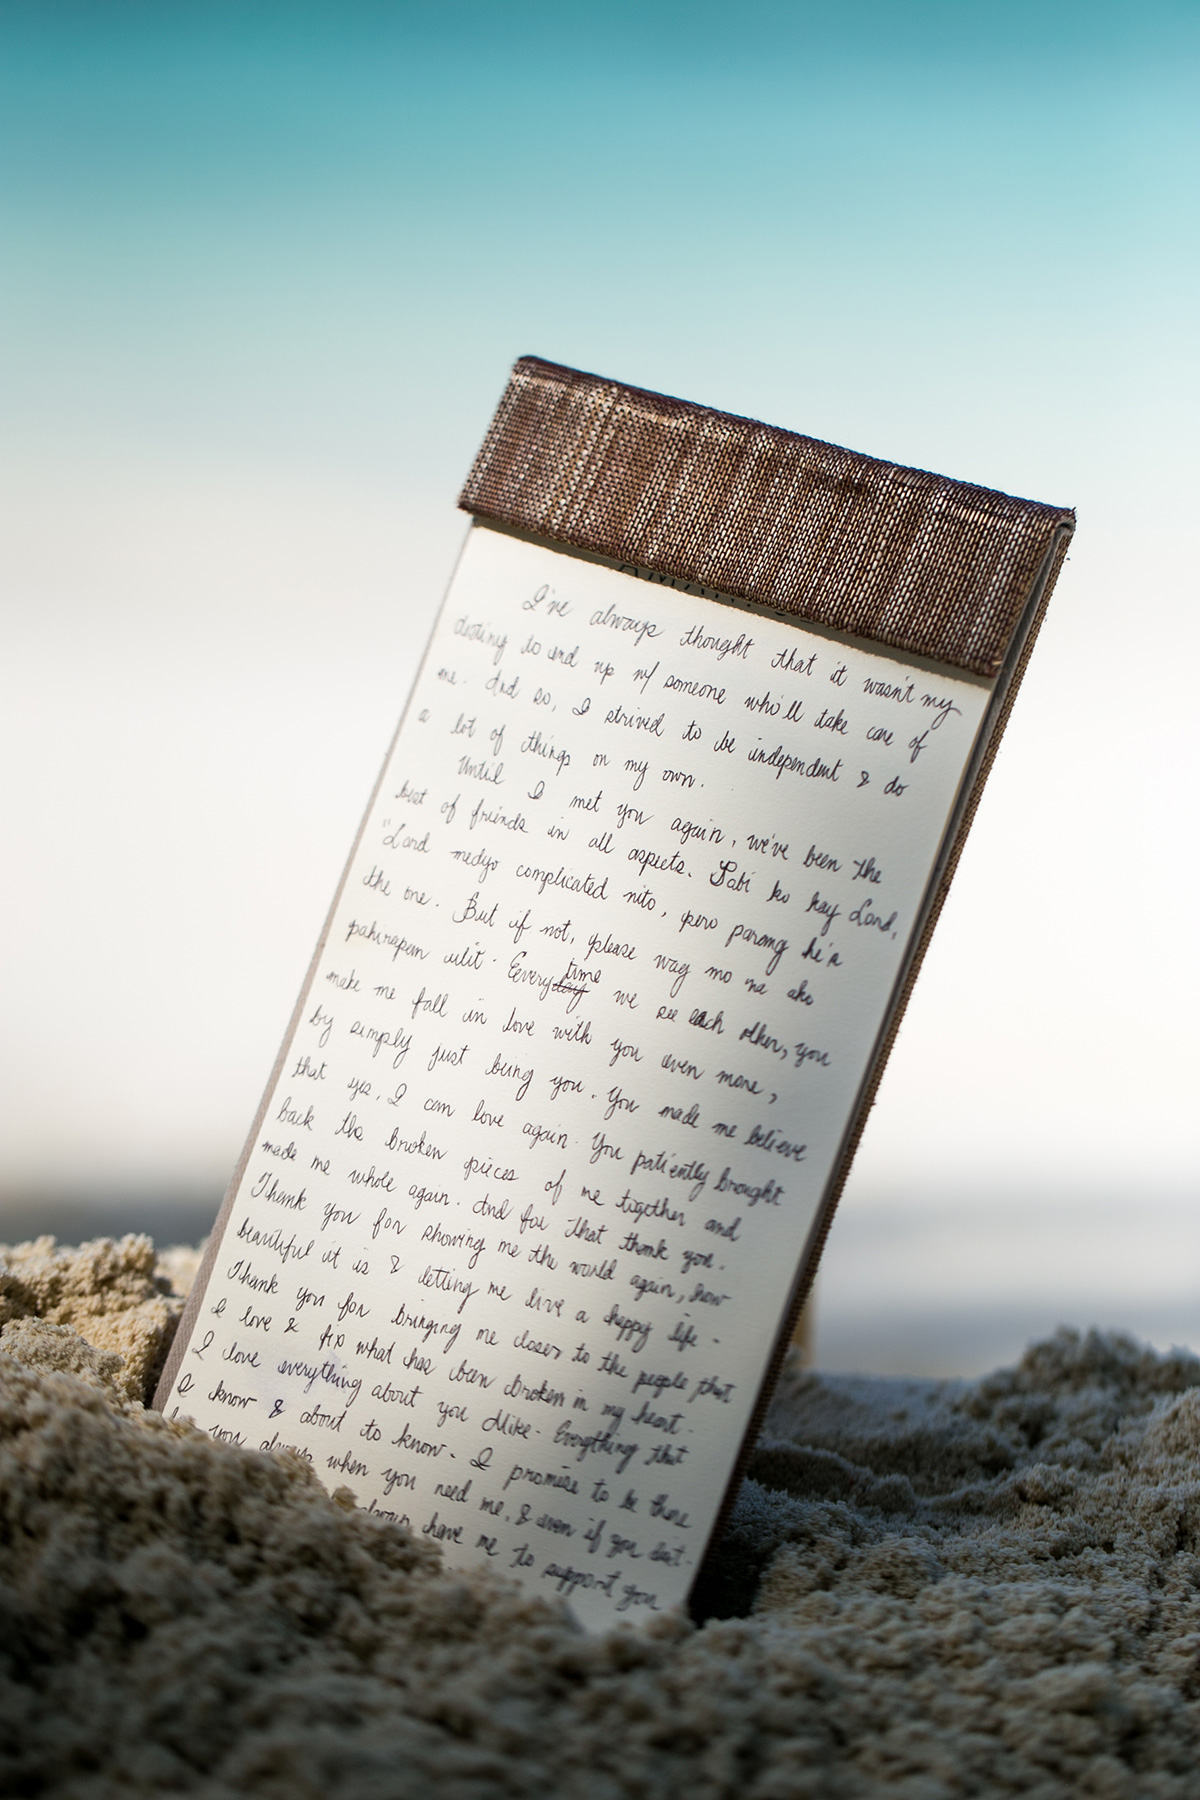 I've always thought that it wasn't my
destiny to end up w/ someone who'll take care of
me. And so, I strived to be independent & do
a lot of things on my own.
Until I met you again, we've been the
best of friends in all aspects. Sabi ko kay Lord,
"Lord medyo complicated nito, pero parang he's
the one. But if not, please wag mo na ako
pahirapan ulit. Everyday time we see each other, you
make me fall in love with you even more,
by simply just being you. You made me believe
that yes, I can love again. You patiently brought
back the broken pieces of me together and
made me whole again. And for that thank you.
Thank you for showing me the world again, how
beautiful it is & letting me live a happy life.
Thank you for bringing me closer to the people that
I love & fix what has been broken in my heart.
I love everything about you Mike. Everything that
I know & about to know. I promise to be there
you always when you need me, & even if you don't.
always have me to support you